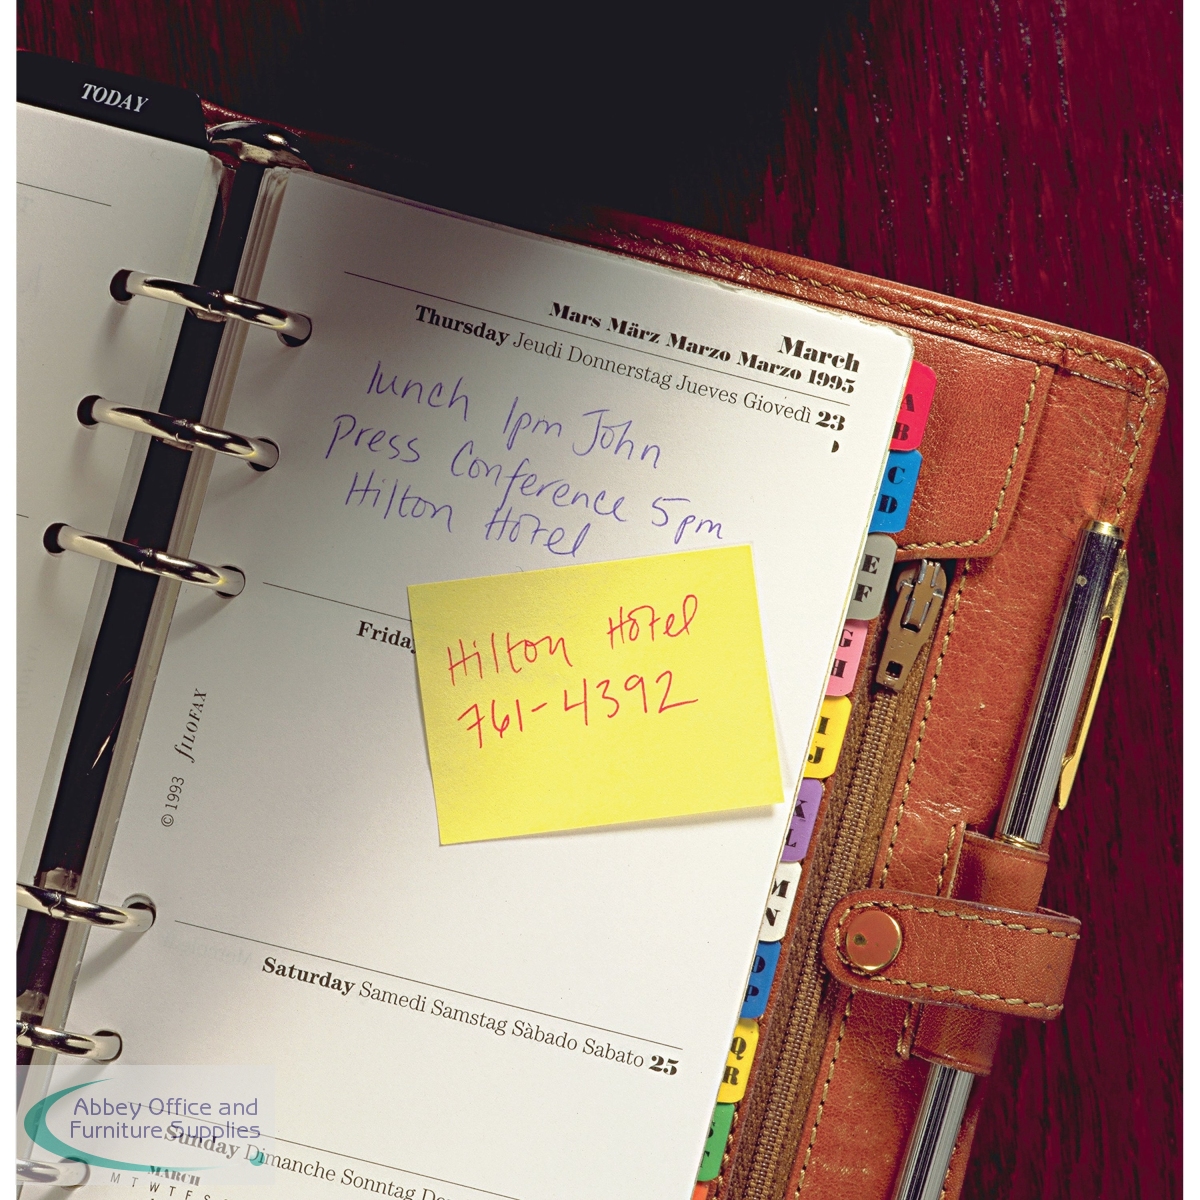 TODAY
March
Mars März Marzo Marzo 1995
Thursday Jeudi Donnerstag Jueves Giovedì 23
lunch 1pm John
Press Conference 5pm
Hilton Hotel
Hilton Hotel
761-4392
© 1993 fILOFAX
Saturday Samedi Samstag Sàbado Sabato 25
Sunday Dimanche Sonntag
MARCH
M T W T F S
A
B
C
D
E
F
G
H
I
J
K
L
M
N
O
P
Q
R
Abbey Office and
Furniture Supplies